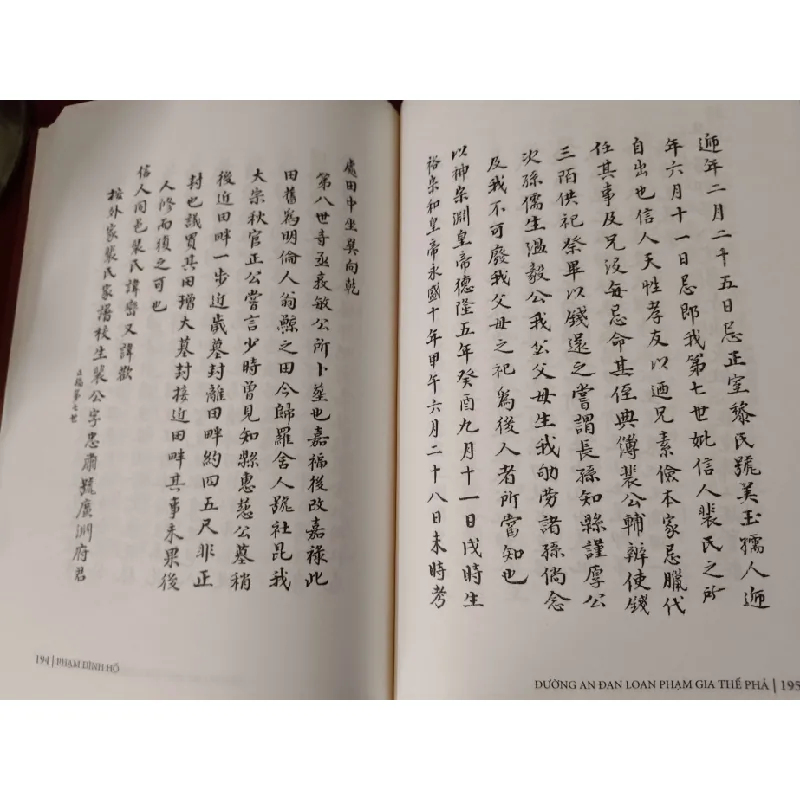 迊年二月二十五日忌正室黎氏號美玉孺人迊
年六月十一日忌即我第七世妣信人裴氏之所
自出也信人天性孝友以迺兄素儉本家忌臘代
任其事及兄没每忌命其侄典簿裴公輔辦使錢
三陌供祀祭畢以錢還之嘗謂長孫知縣謹厚公
次孫儒生溫毅公我公父母生我劬劳諸孫倘念
及我不可廢我父母之祀為後人者所當知也
以神宗淵皇帝德隆五年癸酉九月十一日戌時生
裕宗和皇帝永國十年甲午六月二十八日未時考
DƯỠNG AN ĐAN LOAN PHẠM GIA THẾ PHẢ | 195
處田中坐巽向乾
第八世奇丞裁敏公所卜塟也嘉福後改嘉祿此
田舊為明倫人翁鯨之田今歸羅舍人號社昆我
大宗秋官正公嘗言少時曾見知縣惠慈公墓稍
後近田畔一步近歲墓封離田畔約四五尺非正
封也議買其田增大墓封接近田畔其事未果後
人修而復之可也
信人同邑裴氏諱巒又諱歡
按外家裴氏家譜校生裴公字忠肅號廣淵府君
第七世
194 | PHẠM ĐÌNH HỔ